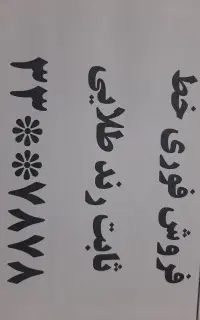 فروش فوری خط
ثابت رند طلایی
۳۳❊❊۷۸۷۸